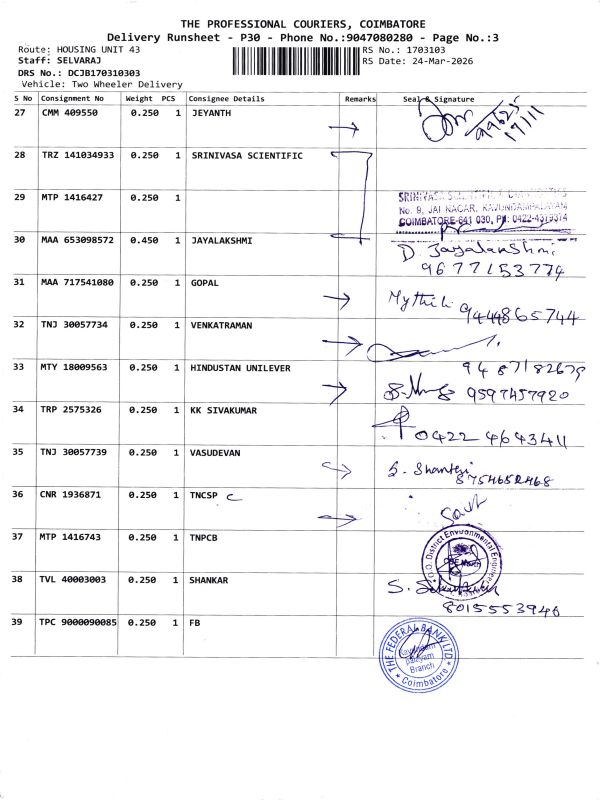 THE PROFESSIONAL COURIERS, COIMBATORE
Delivery Runsheet - P30 - Phone No.:9047080280 - Page No.:3
Route: HOUSING UNIT 43
RS No.: 1703103
Staff: SELVARAJ
RS Date: 24-Mar-2026
DRS No.: DCJB170310303
Vehicle: Two Wheeler Delivery
S No Consignment No Weight PCS Consignee Details Remarks Seal & Signature
27 CMM 409550 0.250 1 JEYANTH
28 TRZ 141034933 0.250 1 SRINIVASA SCIENTIFIC
29 MTP 1416427 0.250 1
No. 9, JAI NAGAR, KAVUNDAMPALAYAM
COIMBATORE-641 030, PH: 0422-4319374
30 MAA 653098572 0.450 1 JAYALAKSHMI
D. Jayalakshmi
9677153774
31 MAA 717541080 0.250 1 GOPAL
Mythili 9444865744
32 TNJ 30057734 0.250 1 VENKATRAMAN
33 MTY 18009563 0.250 1 HINDUSTAN UNILEVER
9487182679
9597457920
34 TRP 2575326 0.250 1 KK SIVAKUMAR
0422 4643411
35 TNJ 30057739 0.250 1 VASUDEVAN
S. Shanthi
8754652468
36 CNR 1936871 0.250 1 TNCSP C
37 MTP 1416743 0.250 1 TNPCB
District Environmental Engineer
38 TVL 40003003 0.250 1 SHANKAR
8015553946
39 TPC 9000090085 0.250 1 FB
THE FEDERAL BANK LTD
Branch
Coimbatore